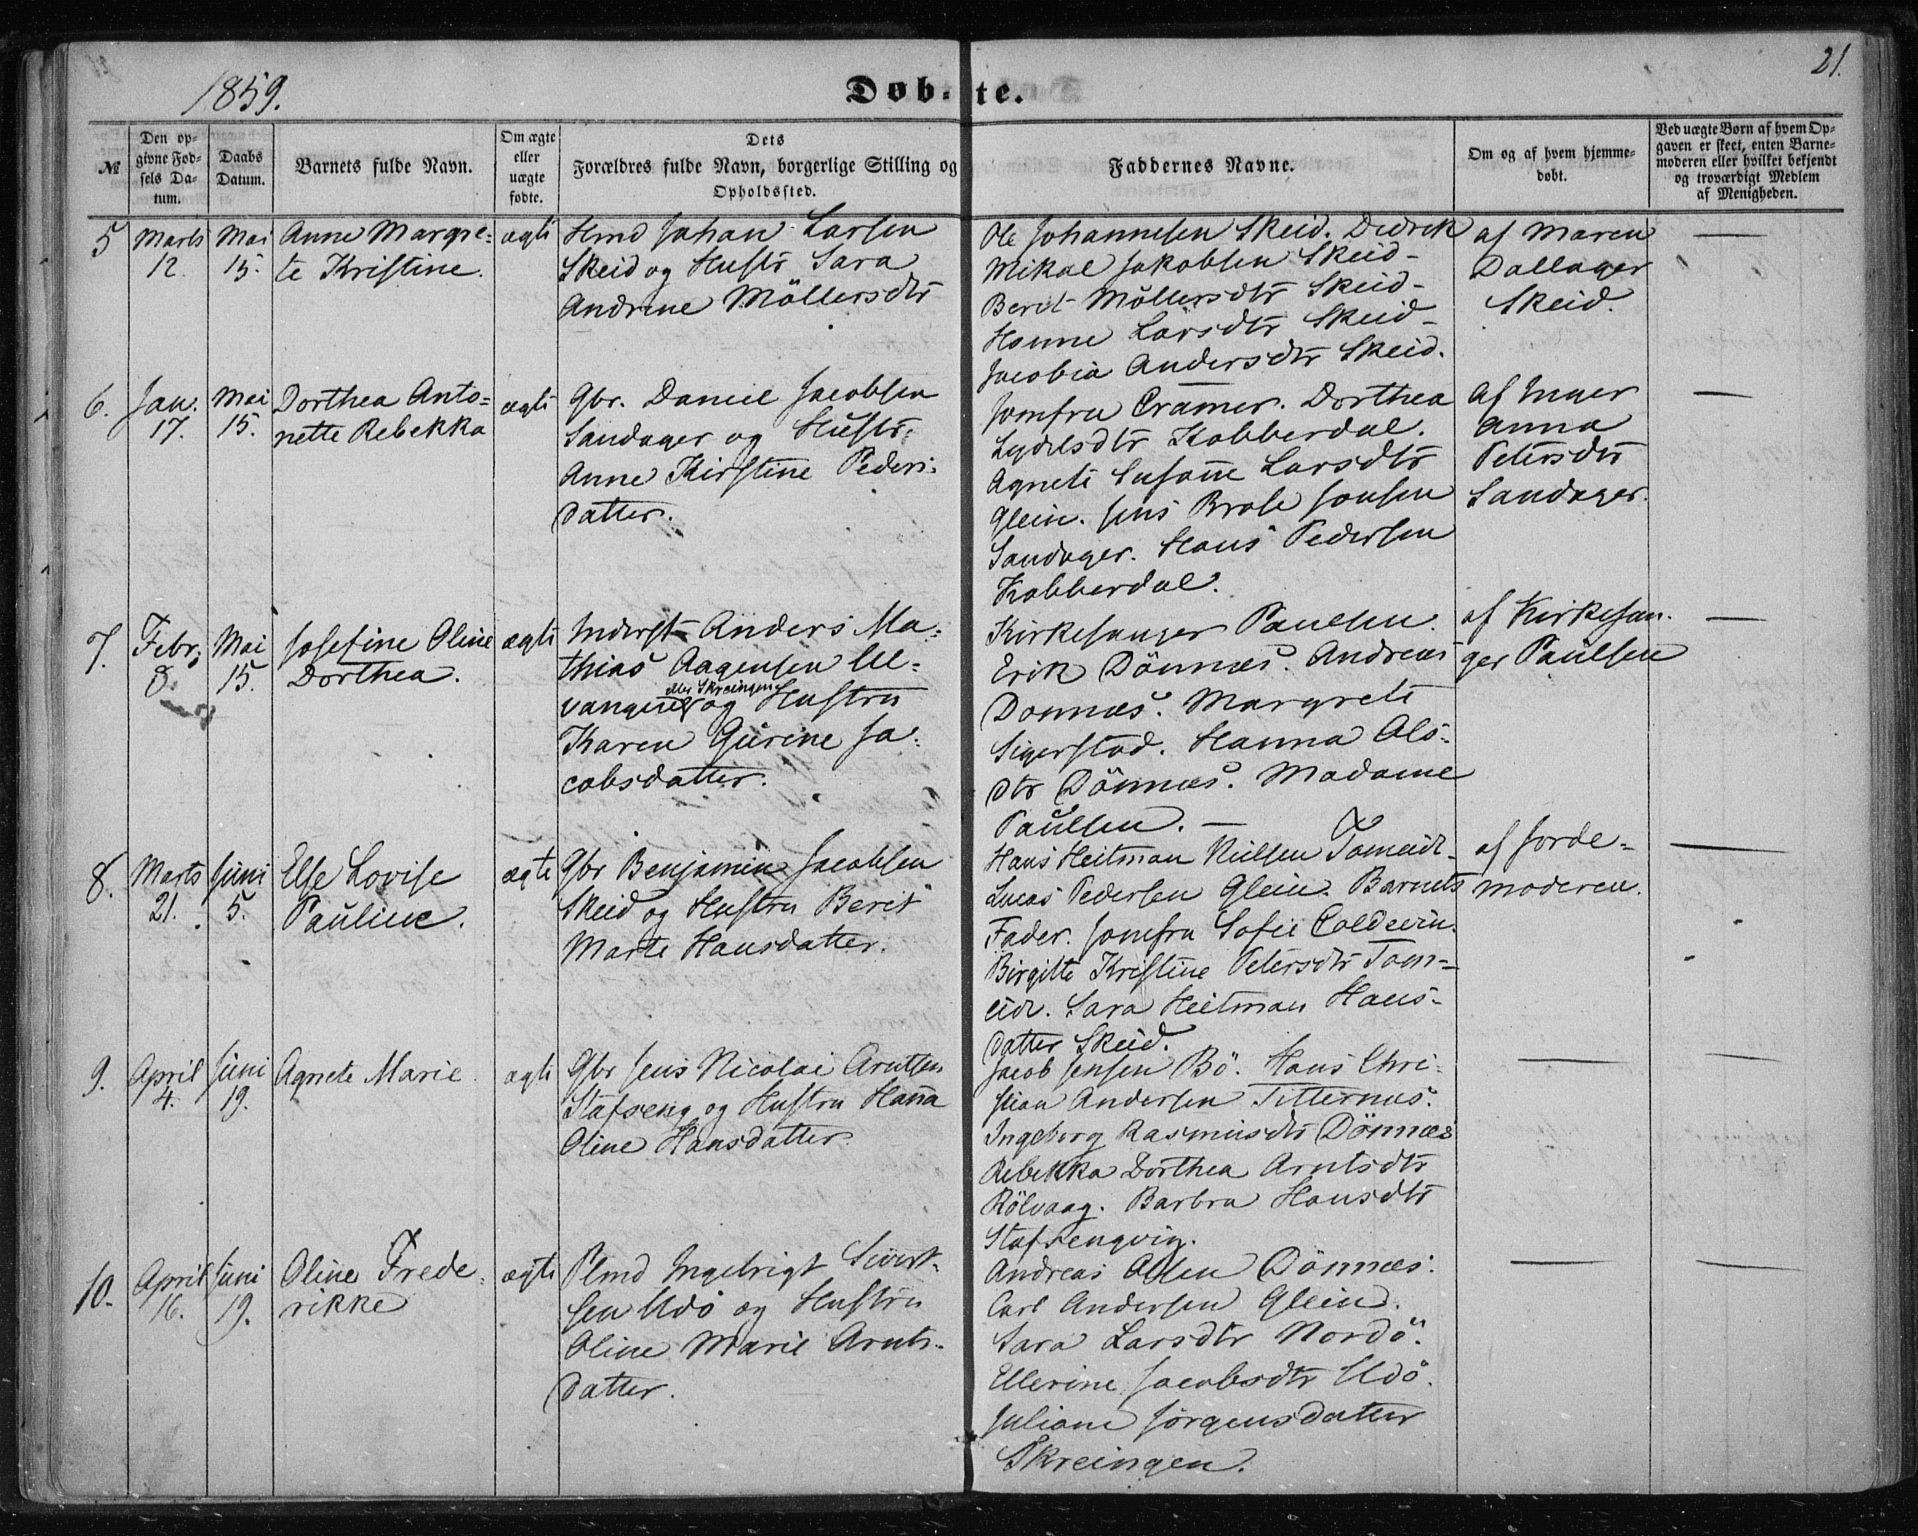 1859.
Døb-te.
21.
№
Den op-
givne Fød-
sels Da-
tum.
Daabs
Datum.
Barnets fulde Navn.
Om ægte
eller
uægte
fødte.
Dets
Forældres fulde Navn, borgerlige Stilling og
Opholdssted.
Faddernes Navne.
Om og af hvem hjemme-
døbt.
Ved uægte Børn af hvem Op-
gaven er skeet, enten Barne-
moderen eller hvilket bekjendt
og troværdigt Medlem
af Menigheden.
5
Marts
12.
Mai
15.
Anne Margre-
te Kristine.
ægte
Hmd Johan Larsen
Skeid og Hustr Sara
Andrine Möllersdtr
Ole Johannesen Skeid. Didrik
Mikal Jakobsen Skeid-
Berit Möllersdtr Skeid-
Hanne Larsdtr Skeid-
Jacobia Andersdtr Skeid.
af Maren
Dallager
Skeid.
6.
Jan.
17.
Mai
15.
Dorthea Anto-
nette Rebekka
ægte
Gbr. Daniel Jacobsen
Sandager og Hustr.
Anne Kirstine Peders-
datter.
Jomfru Cramer. Dorthea
Lydelsdtr Kobberdal.
Agnete Susanne Larsdtr
Glein. Jens Brose Jonsen
Sandager. Hans Pedersen
Kobberdal.
af Inger
Anna
Petersdtr
Sandager.
7.
Febr.
8.
Mai
15.
Josefine Oline
Dorthea.
ægte
Inderst Anders Ma-
thias Aagensen El-
vangen og Hustru
eller Skreingen
Karen Gurine Ja-
cobsdatter.
Kirkesanger Paulsen.
Erik Dönnæs. Andreas
Donnæs. Margrete
Sigerstad. Hanna Ols-
dtr Dönnæs. Madame
Paulsen. —
af Kirkesan-
ger Paulsen
8.
Marts
21.
Juni
5.
Else Lovise
Pauline.
ægte
Gbr Benjamin Jacobsen
Skeid og Hustru Berit
Marte Hansdatter.
Hans Heitman Nielsen Tomeide-
Lucas Pedersen Glein. Barnets
Fader. Jomfru Sofie Coldevin.
Birgitte Kristine Petersdtr Tom-
eide. Sara Heitman Hans-
datter Skeid.
af Jorde-
moderen.
9.
April
4.
Juni
19.
Agnete Marie
ægte
Gbr Jens Nicolai Arntsen
Stafseng og Hustru Hanna
Oline Hansdatter.
Jacob Jensen Bö. Hans Chri-
stian Andersen Titternes.
Ingeborg Rasmusdtr Dönnæs
Rebekka Dorthea Arntsdtr
Rölvaag. Barbra Hansdtr
Stafsengvig.
10.
April
16.
Juni
19.
Oline Frede-
rikke
ægte
Plmd Ingebrigt Sivert-
sen Udö og Hustru
Oline Marie Arnts-
datter.
Andreas Olsen Dönnæs.
Carl Andersen Glein.
Sara Larsdtr Nordö.
Ellerine Jacobsdtr Udö.
Juliane Jörgensdatter
Skreingen.